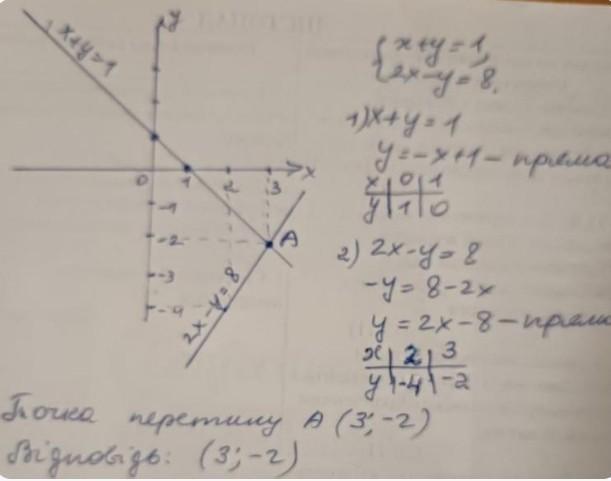 y
x+y=1
0 1 2 3 x
-1
-2 A
-3
-4
2x-y=8
{x+y=1,
{2x-y=8.
1) x+y=1
y=-x+1 - пряма
x | 0 | 1
y | 1 | 0
2) 2x-y=8
-y=8-2x
y=2x-8 - пряма
x | 2 | 3
y | -4 | -2
Точка перетину A (3;-2)
Відповідь: (3;-2)